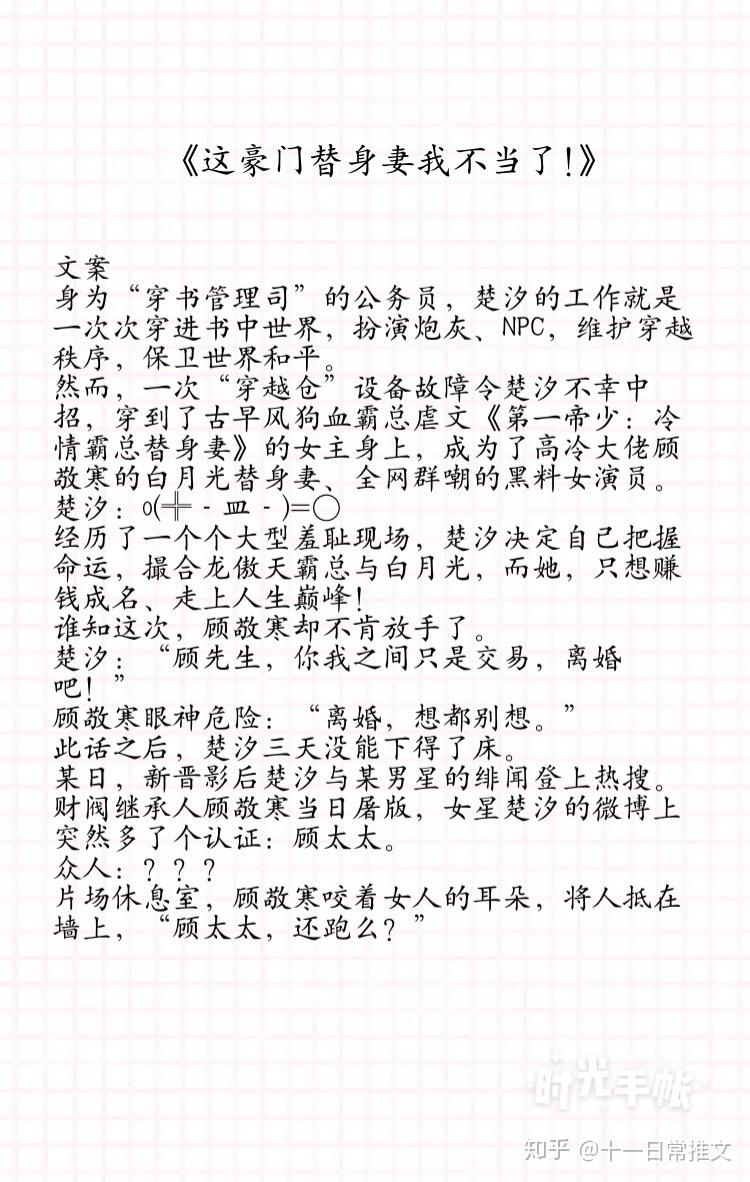 《这豪门替身妻我不当了!》
文案
身为“穿书管理司”的公务员，楚汐的工作就是
一次次穿进书中世界，扮演炮灰、NPC，维护穿越
秩序，保卫世界和平。
然而，一次“穿越仓”设备故障令楚汐不幸中
招，穿到了古早风狗血霸总虐文《第一帝少：冷
情霸总替身妻》的女主身上，成为了高冷大佬顾
敬寒的白月光替身妻、全网群嘲的黑料女演员。
楚汐：o(╬－皿－)=○
经历了一个个大型羞耻现场，楚汐决定自己把握
命运，撮合龙傲天霸总与白月光，而她，只想赚
钱成名、走上人生巅峰!
谁知这次，顾敬寒却不肯放手了。
楚汐：“顾先生，你我之间只是交易，离婚
吧!”
顾敬寒眼神危险：“离婚，想都别想。”
此话之后，楚汐三天没能下得了床。
某日，新晋影后楚汐与某男星的绯闻登上热搜。
财阀继承人顾敬寒当日屠版，女星楚汐的微博上
突然多了个认证：顾太太。
众人：???
片场休息室，顾敬寒咬着女人的耳朵，将人抵在
墙上，“顾太太，还跑么?”
时光手帐
知乎 @十一日常推文